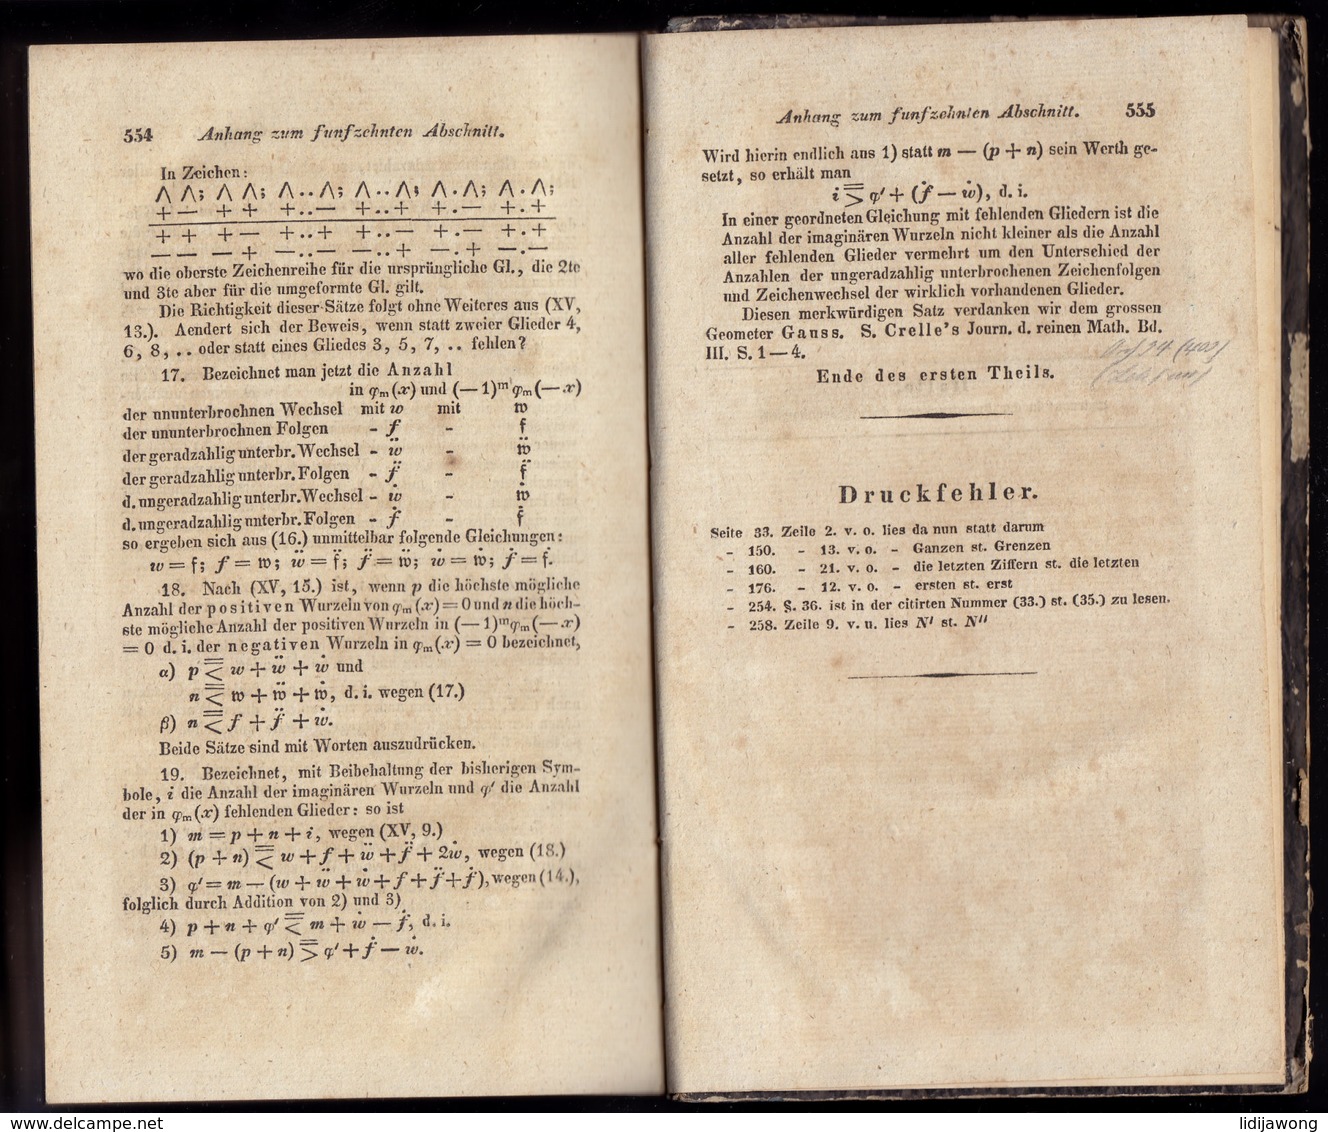 554 Anhang zum funfzehnten Abschnitt.
In Zeichen:
Λ Λ; Λ Λ; Λ..Λ; Λ..Λ; Λ.Λ; Λ.Λ;
+ — + + +..— +..+ +.— +.+
+ + + — +..+ +..— +.— +.+
— — — + —..— —..+ —.+ —.—
wo die oberste Zeichenreihe für die ursprüngliche Gl., die 2te
und 3te aber für die umgeformte Gl. gilt.
Die Richtigkeit dieser Sätze folgt ohne Weiteres aus (XV,
13.). Aendert sich der Beweis, wenn statt zweier Glieder 4,
6, 8, .. oder statt eines Gliedes 3, 5, 7, .. fehlen?
17. Bezeichnet man jetzt die Anzahl
in φₘ(x) und (—1)ᵐφₘ(—x)
der ununterbrochnen Wechsel mit w mit 𝔴
der ununterbrochnen Folgen - f - 𝔣
der geradzahlig unterbr. Wechsel - ẅ - 𝔴̈
der geradzahlig unterbr. Folgen - f̈ - 𝔣̈
d. ungeradzahlig unterbr. Wechsel - ẇ - 𝔴̇
d. ungeradzahlig unterbr. Folgen - ḟ - 𝔣̇
so ergeben sich aus (16.) unmittelbar folgende Gleichungen:
w = 𝔣; f = 𝔴; ẅ = 𝔣̈; f̈ = 𝔴̈; ẇ = 𝔴̇; ḟ = 𝔣̇.
18. Nach (XV, 15.) ist, wenn p die höchste mögliche
Anzahl der positiven Wurzeln von φₘ(x) = 0 und n die höch-
ste mögliche Anzahl der positiven Wurzeln in (—1)ᵐφₘ(—x)
= 0 d. i. der negativen Wurzeln in φₘ(x) = 0 bezeichnet,
α) p ≦ w + ẅ + ẇ und
n ≦ 𝔴 + 𝔴̈ + 𝔴̇, d. i. wegen (17.)
β) n ≦ f + f̈ + ẇ.
Beide Sätze sind mit Worten auszudrücken.
19. Bezeichnet, mit Beibehaltung der bisherigen Sym-
bole, i die Anzahl der imaginären Wurzeln und φ' die Anzahl
der in φₘ(x) fehlenden Glieder: so ist
1) m = p + n + i, wegen (XV, 9.)
2) (p + n) ≦ w + f + ẅ + f̈ + 2ẇ, wegen (18.)
3) φ' = m — (w + ẅ + ẇ + f + f̈ + ḟ), wegen (14.),
folglich durch Addition von 2) und 3)
4) p + n + φ' ≦ m + ẇ — ḟ, d. i.
5) m — (p + n) ≧ φ' + ḟ — ẇ.
Anhang zum funfzehnten Abschnitt. 555
Wird hierin endlich aus 1) statt m — (p + n) sein Werth ge-
setzt, so erhält man
i ≧ φ' + (ḟ — ẇ), d. i.
In einer geordneten Gleichung mit fehlenden Gliedern ist die
Anzahl der imaginären Wurzeln nicht kleiner als die Anzahl
aller fehlenden Glieder vermehrt um den Unterschied der
Anzahlen der ungeradzahlig unterbrochenen Zeichenfolgen
und Zeichenwechsel der wirklich vorhandenen Glieder.
Diesen merkwürdigen Satz verdanken wir dem grossen
Geometer Gauss. S. Crelle's Journ. d. reinen Math. Bd.
III. S. 1—4.
Ende des ersten Theils.
Druckfehler.
Seite 33. Zeile 2. v. o. lies da nun statt darum
- 150. - 13. v. o. - Ganzen st. Grenzen
- 160. - 21. v. o. - die letzten Ziffern st. die letzten
- 176. - 12. v. o. - ersten st. erst
- 254. §. 36. ist in der citirten Nummer (33.) st. (35.) zu lesen.
- 258. Zeile 9. v. u. lies N' st. N''
www.delcampe.net
lidijawong